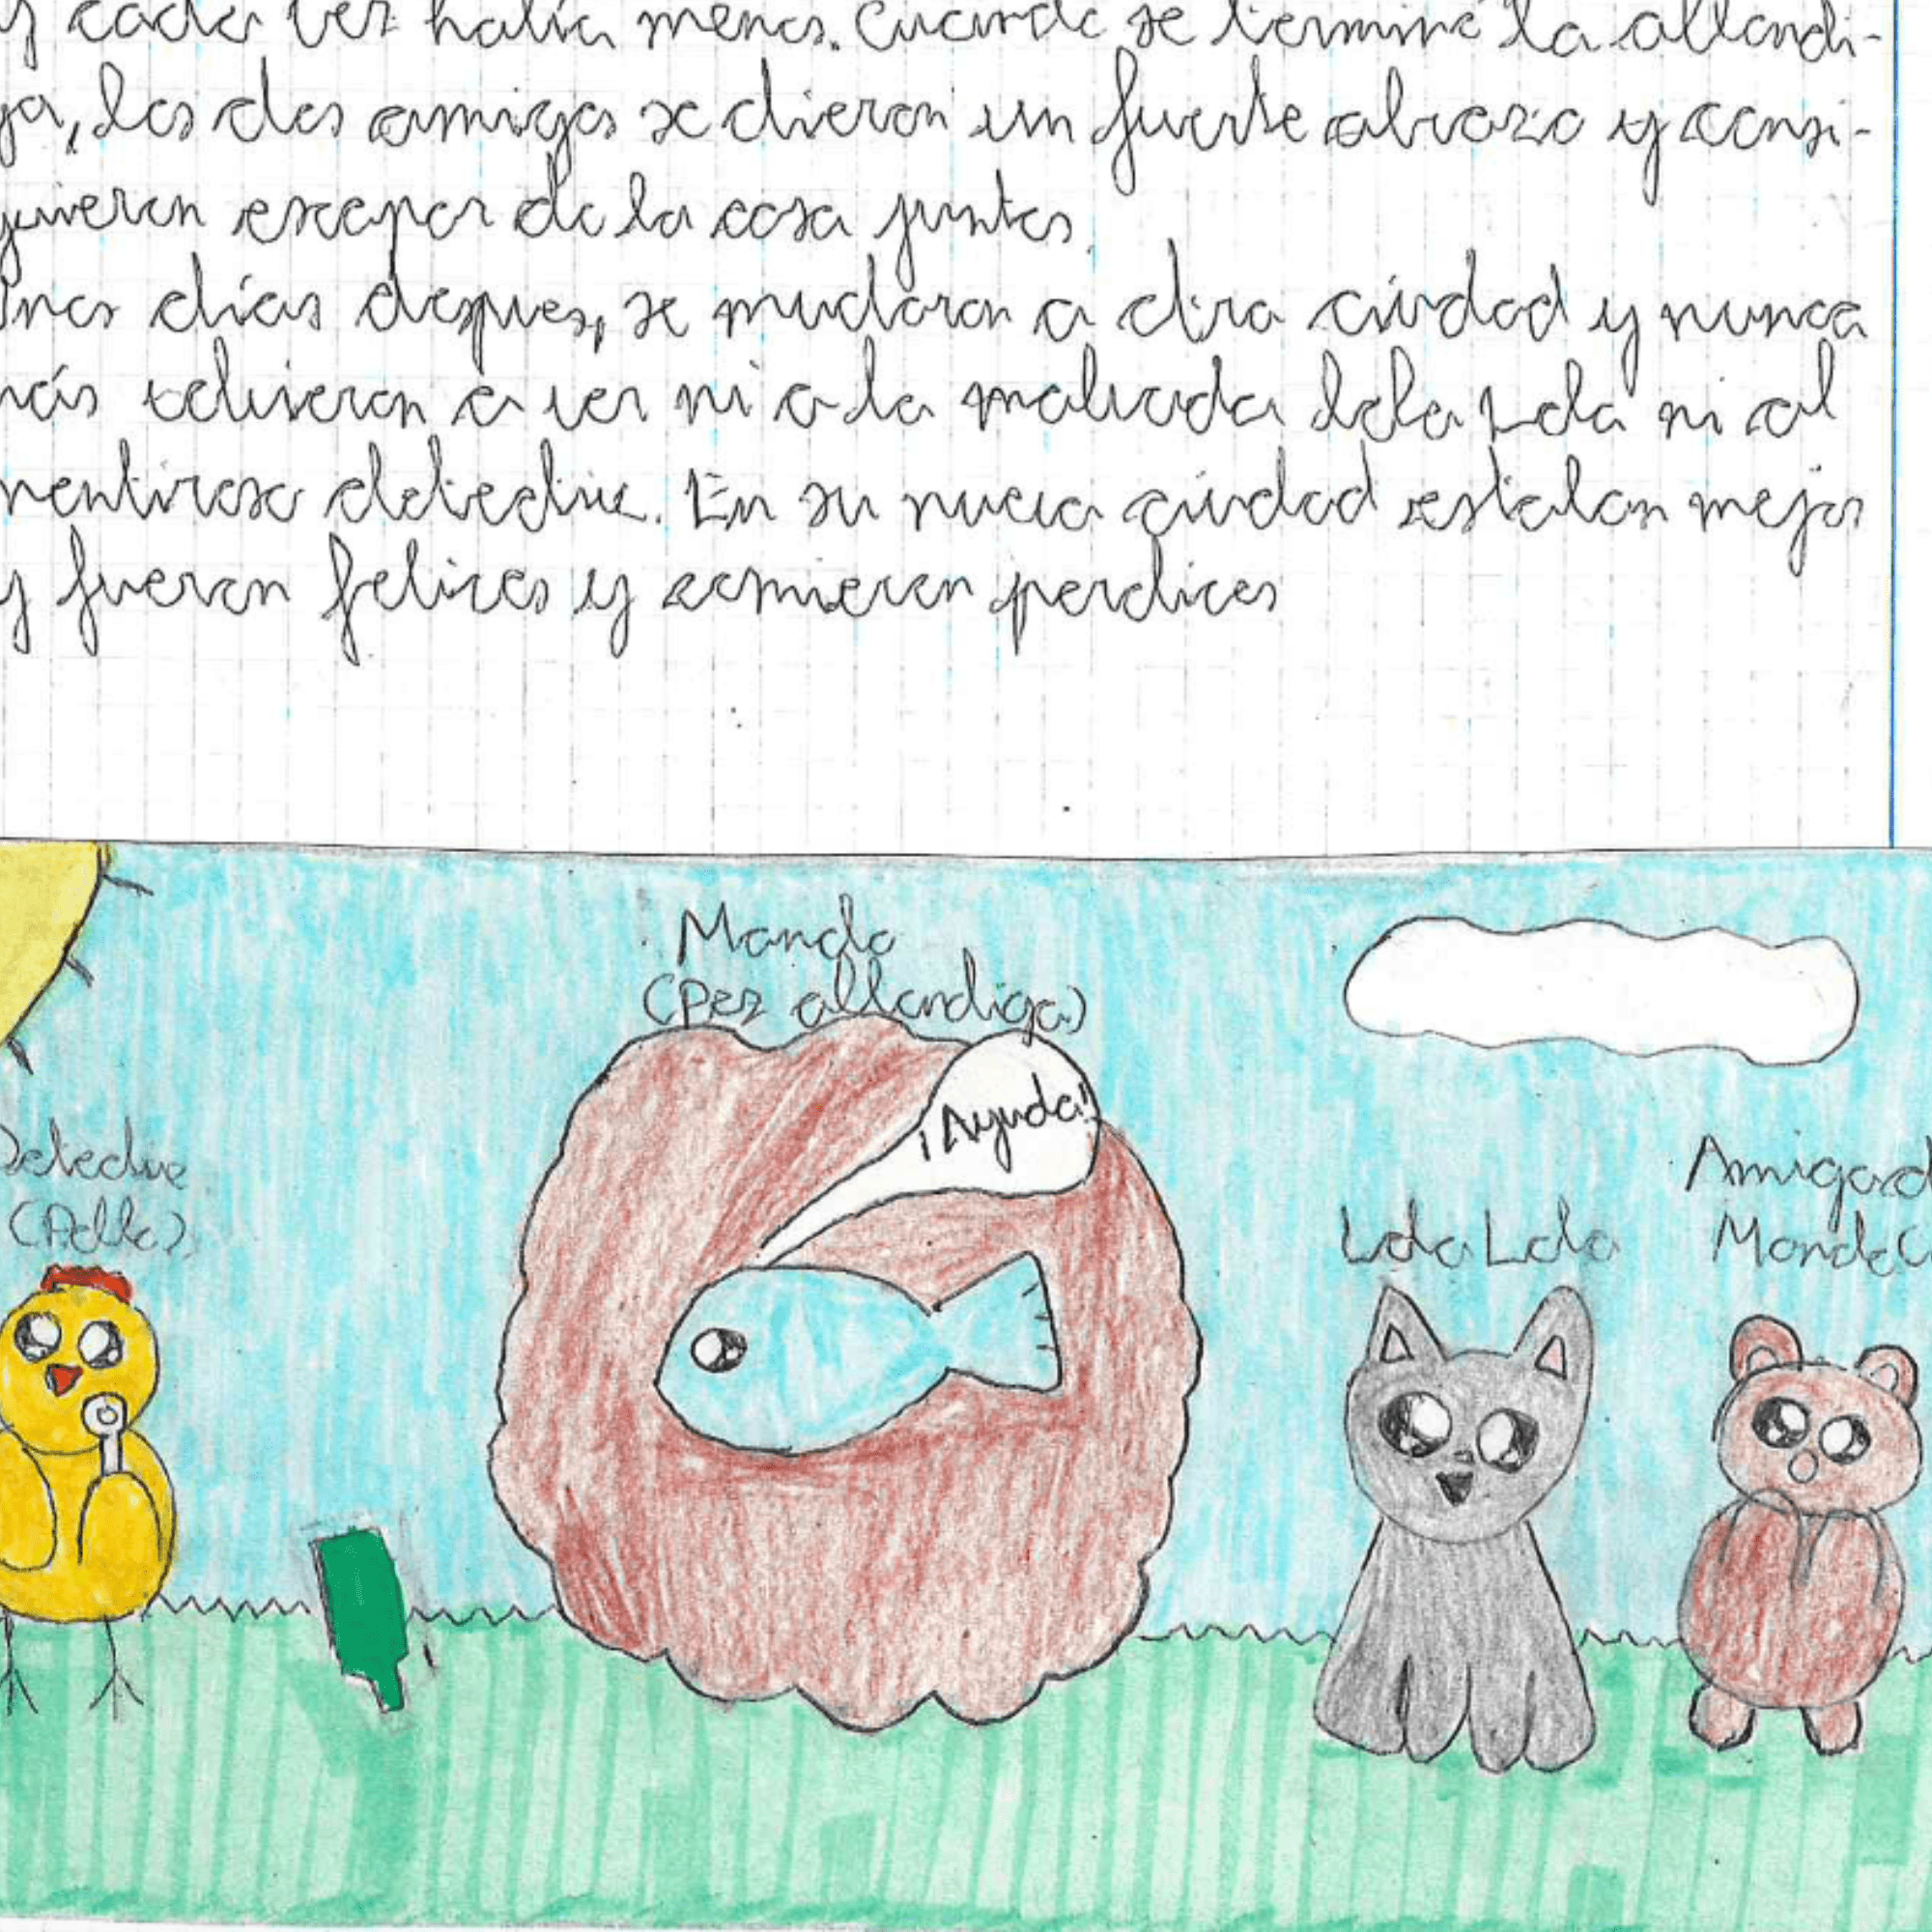 y cada vez había menos. Cuando se terminó la allondi-
ga, los dos amigos se dieron un fuerte abrazo y consi-
guieron escapar de la casa juntos.
Unos días despues, se mudaron a otra ciudad y nunca
más volvieron a ver ni a la malvada Lola Lola ni al
mentiroso detective. En su nueva ciudad estaban mejor
y fueron felices y comieron perdices
Mondo
(Pez allondiga)
¡Ayuda!
Detective
(Pollo)
Lola Lola
Amigo d
Mondo (